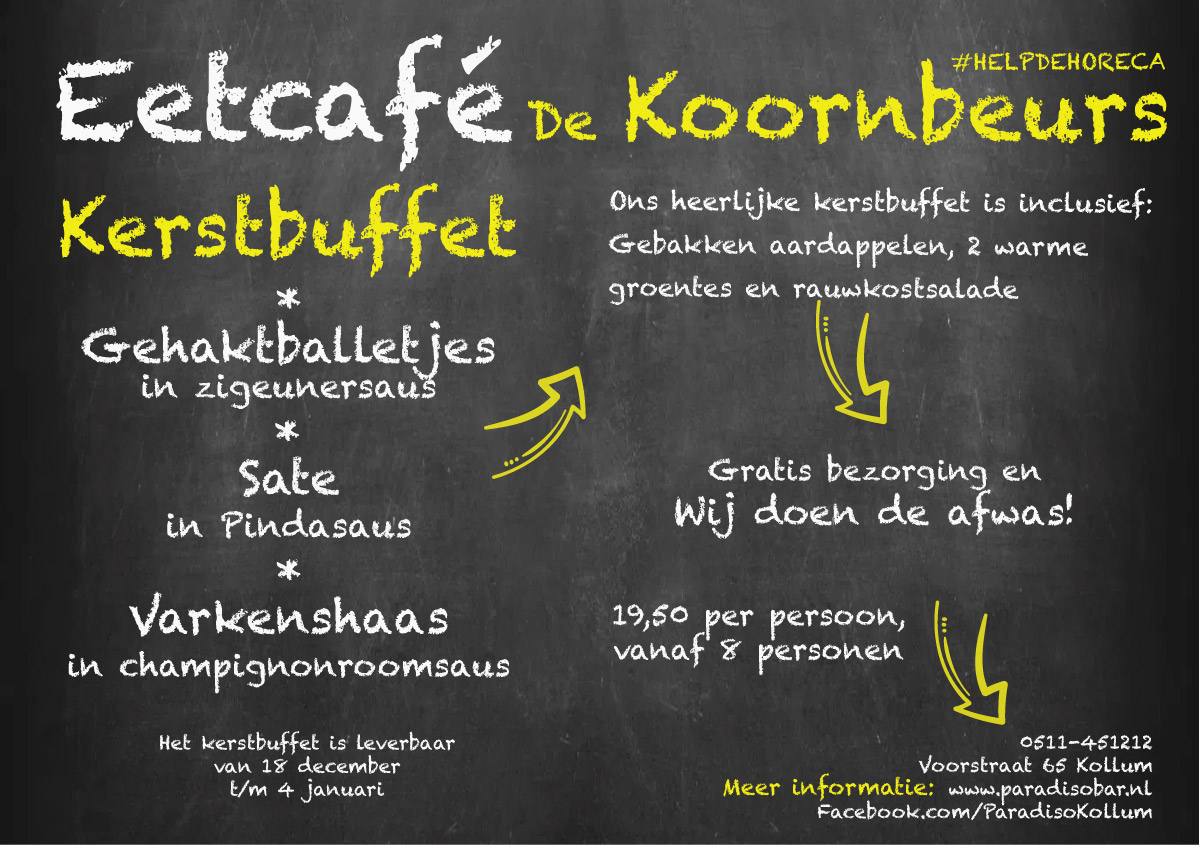 #HELPDEHORECA
Eetcafé De Koornbeurs
Kerstbuffet
*
Gehaktballetjes
in zigeunersaus
*
Sate
in Pindasaus
*
Varkenshaas
in champignonroomsaus
Het kerstbuffet is leverbaar
van 18 december
t/m 4 januari
Ons heerlijke kerstbuffet is inclusief:
Gebakken aardappelen, 2 warme
groentes en rauwkostsalade
Gratis bezorging en
Wij doen de afwas!
19,50 per persoon,
vanaf 8 personen
0511-451212
Voorstraat 65 Kollum
Meer informatie: www.paradisobar.nl
Facebook.com/ParadisoKollum